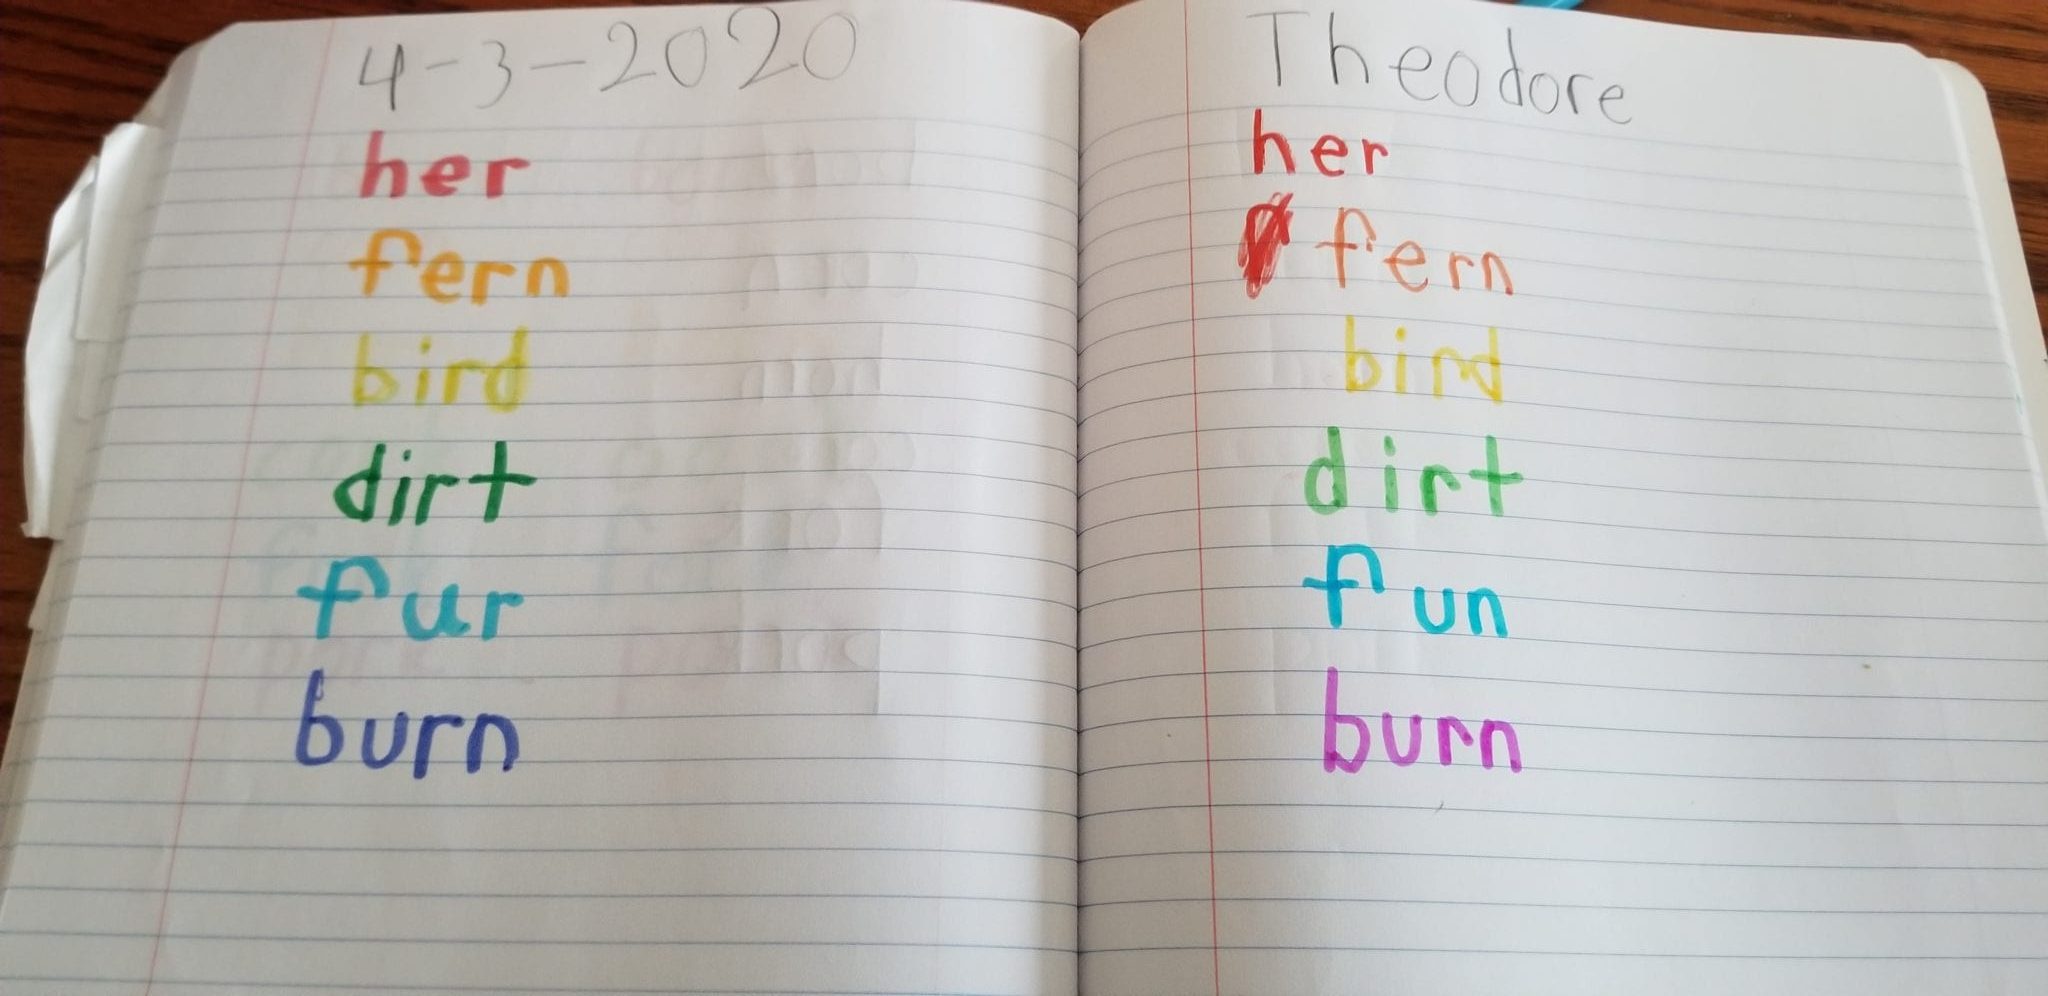 4-3-2020
her
fern
bird
dirt
fur
burn
Theodore
her
fern
bird
dirt
fun
burn